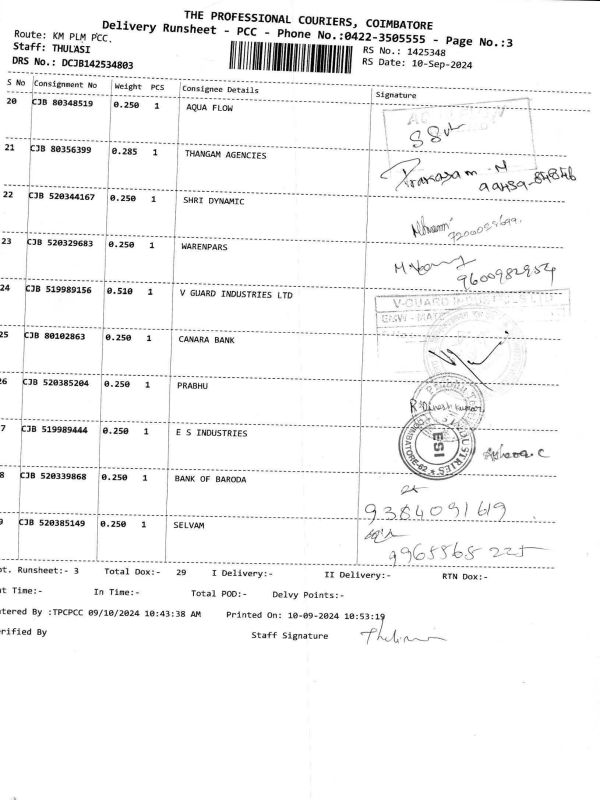 THE PROFESSIONAL COURIERS, COIMBATORE
Delivery Runsheet - PCC - Phone No.:0422-3505555 - Page No.:3
Route: KM PLM PCC. RS No.: 1425348
Staff: THULASI RS Date: 10-Sep-2024
DRS No.: DCJB142534803
S No Consignment No Weight PCS Consignee Details Signature
20 CJB 80348519 0.250 1 AQUA FLOW
21 CJB 80356399 0.285 1 THANGAM AGENCIES
22 CJB 520344167 0.250 1 SHRI DYNAMIC
23 CJB 520329683 0.250 1 WARENPARS
9600982954
24 CJB 519989156 0.510 1 V GUARD INDUSTRIES LTD
25 CJB 80102863 0.250 1 CANARA BANK
6 CJB 520385204 0.250 1 PRABHU
R. Dinesh kumar
7 CJB 519989444 0.250 1 E S INDUSTRIES
ESI
COIMBATORE-62
8 CJB 520339868 0.250 1 BANK OF BARODA
9384091619
9 CJB 520385149 0.250 1 SELVAM
9965568225
ot. Runsheet:- 3 Total Dox:- 29 I Delivery:- II Delivery:- RTN Dox:-
t Time:- In Time:- Total POD:- Delvy Points:-
tered By :TPCPCC 09/10/2024 10:43:38 AM Printed On: 10-09-2024 10:53:19
rified By Staff Signature